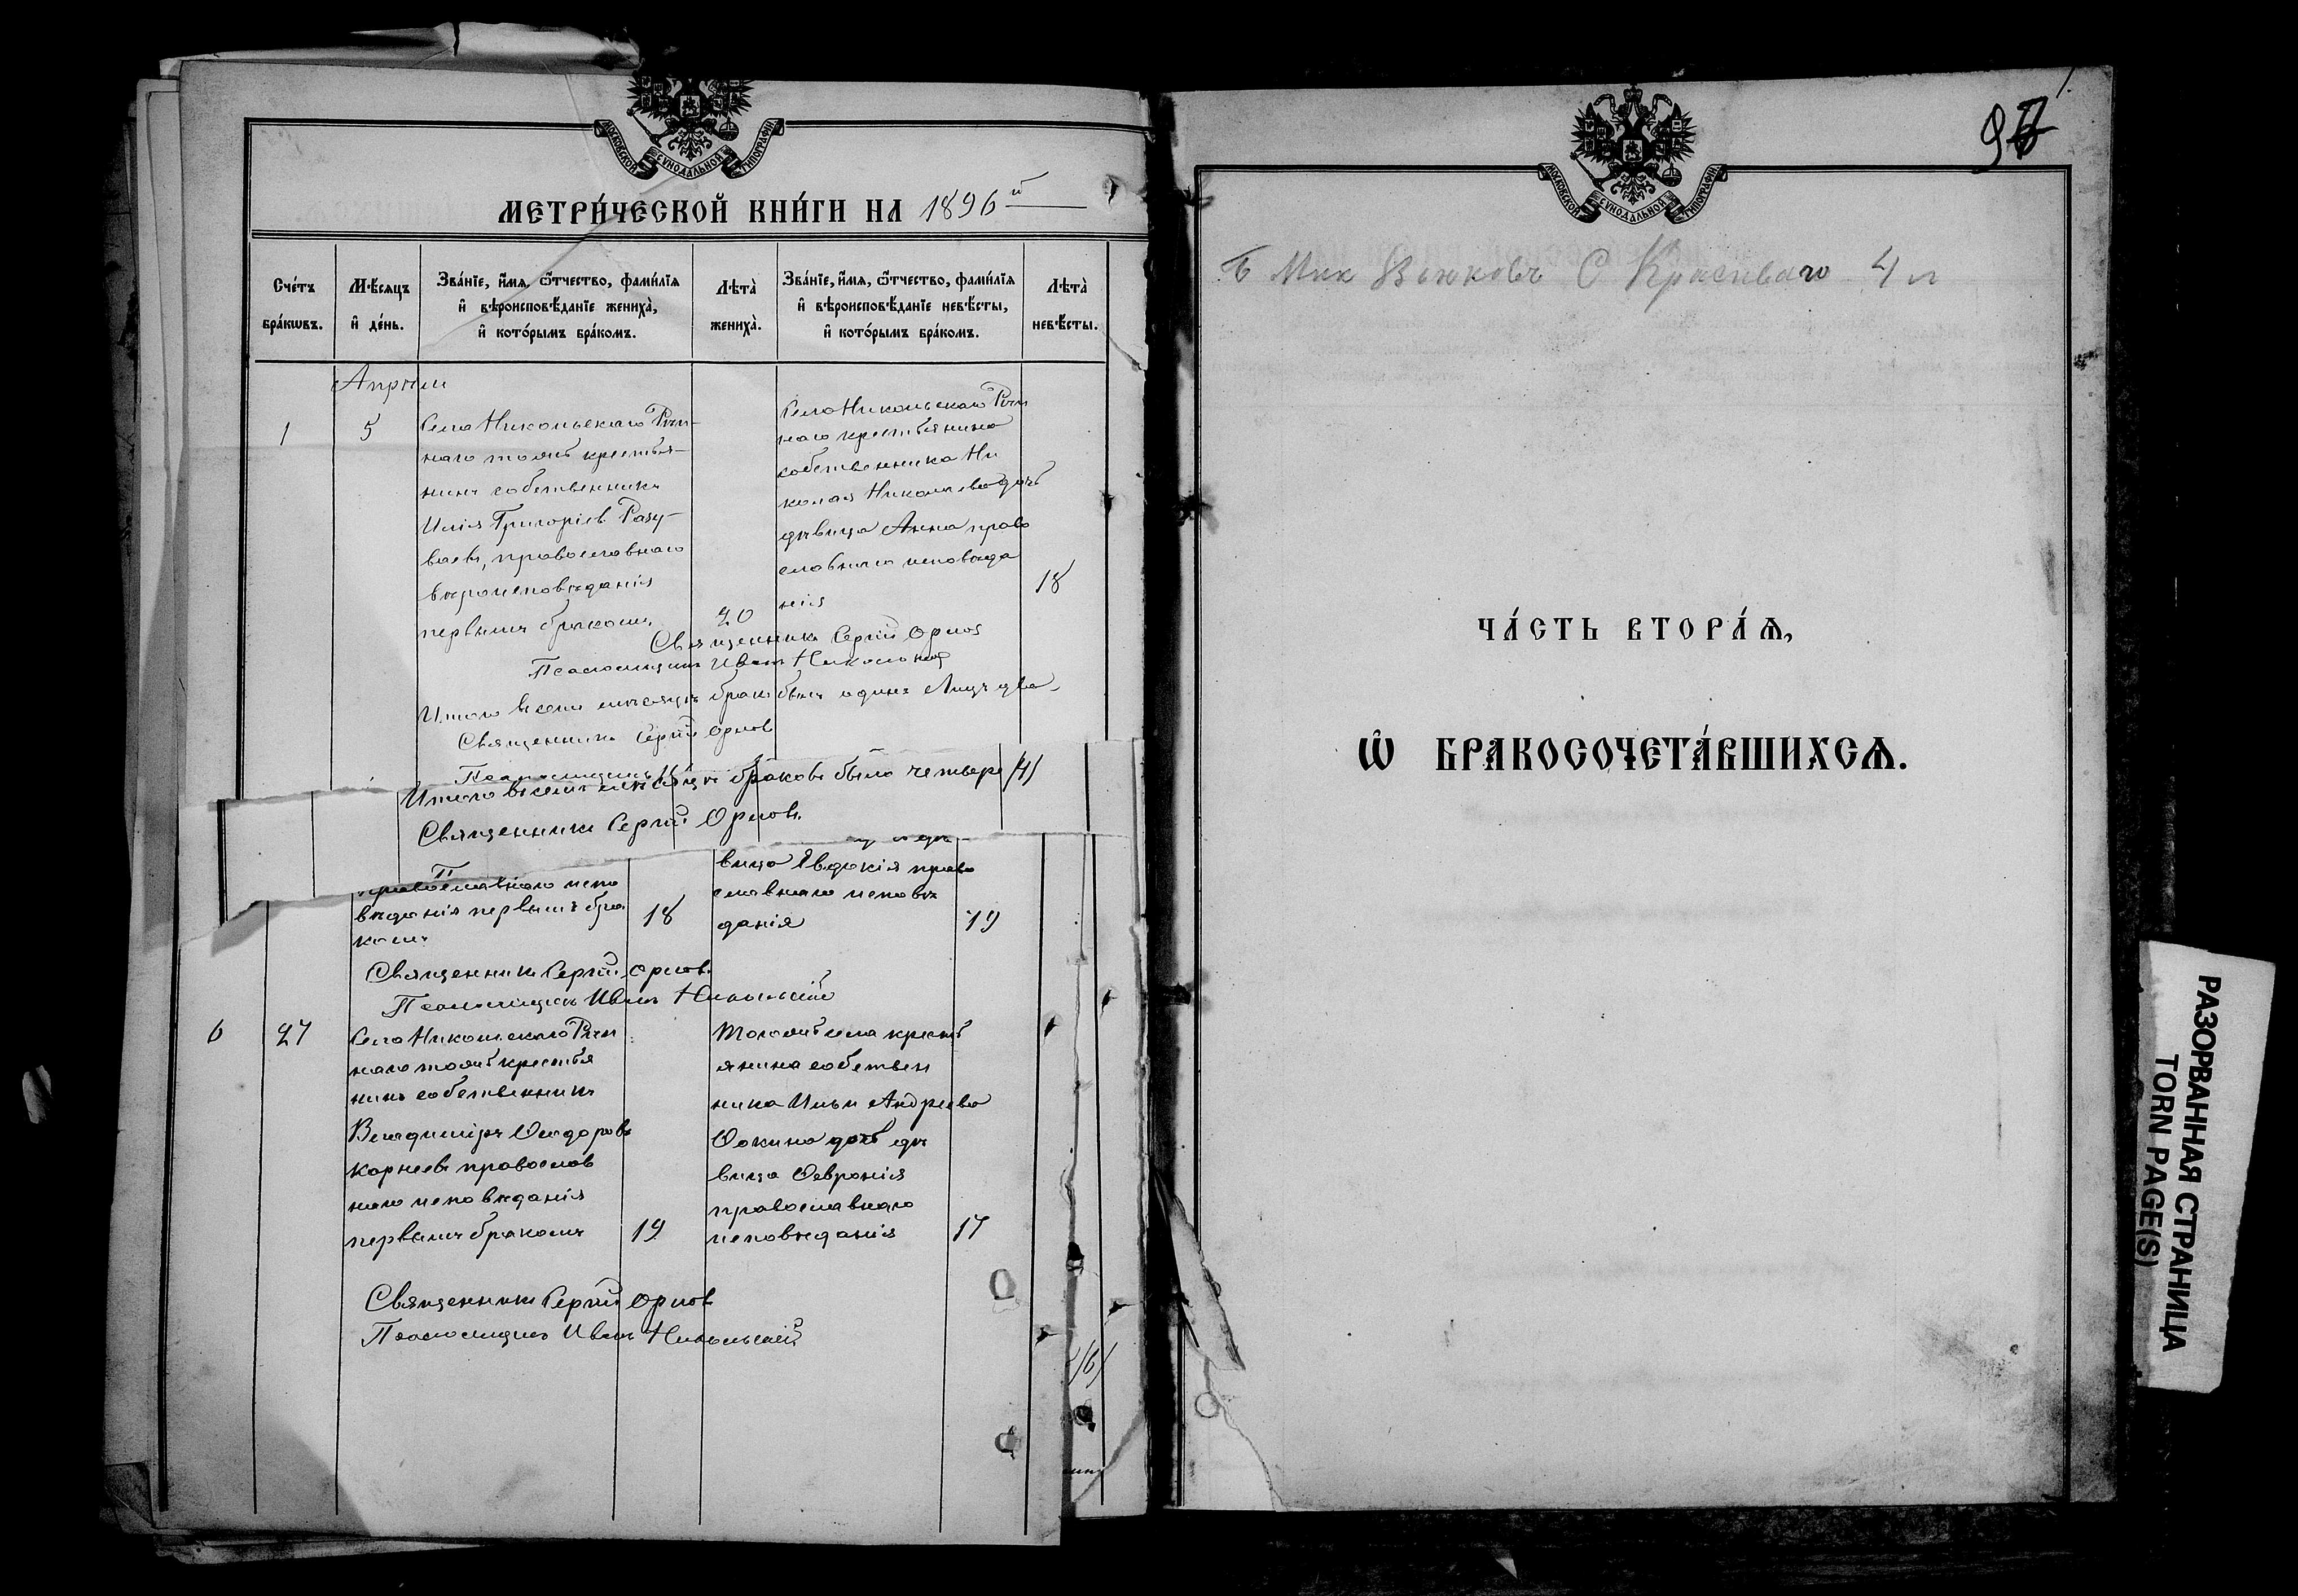 МОСКОВСКОЙ СѴНОДАЛЬНОЙ ТИПОГРАФІИ
МЕТРИ́ЧЕСКОЙ КНИ́ГИ НА 1896 й
Сче́тъ бра́кѡвъ.
Мѣ́сяцъ и҆ де́нь.
Зва́нїе, и҆́мя, ѻ҆́тчество, фами́лїя
и҆ вѣроисповѣ́данїе жениха̀,
и҆ кото́рымъ бра́комъ.
Лѣта̀ жениха̀.
Зва́нїе, и҆́мя, ѻ҆́тчество, фами́лїя
и҆ вѣроисповѣ́данїе невѣ́сты,
и҆ кото́рымъ бра́комъ.
Лѣта̀ невѣ́сты.
Апрѣль
1
5
Села Никольскаго
наго тожъ крестья-
нинъ собственникъ
Илія Григоріев Разу-
ваевъ, православнаго
вѣроисповѣданія
первымъ бракомъ,
20
Села Никольскаго
наго крестьянина
собственника Ни
колая Николаева дочь
дѣвица Анна право
славнаго исповѣда
нія
18
Священникъ Сергій Орлов
Псаломщикъ Иванъ Никольскій
Итого в семъ мѣсяцѣ бракъ былъ одинъ Лицъ два
Священникъ Сергій Орлов
Псаломщикъ
Итого в семъ мѣсяцѣ браковъ было четыре (4)
Священникъ Сергій Орловъ.
православнаго испо
вѣданія первымъ бра
комъ
18
вица Евдокія право
славнаго исповѣ
данія
19
Священникъ Сергій Орлов.
Псаломщикъ Иванъ Никольскій
6
27
Села Никольскаго
наго тожъ крестья
нинъ собственникъ
Владиміръ Ѳеодоровъ
Корнеевъ православ
наго исповѣданія
первымъ бракомъ
19
Тогожъ села кресть
янина собствен
ника Ильи Андреева
Ѳокина дочь дѣ
вица Ѳевронія
православнаго
исповѣданія
17
Священникъ Сергій Орлов
Псаломщикъ Иванъ Никольскій
(6)
МОСКОВСКОЙ СѴНОДАЛЬНОЙ ТИПОГРАФІИ
Красиваго 4 л
ЧА́СТЬ ВТОРА́Ѧ,
Ѽ БРАКОСОЧЕТА́ВШИХСѦ.
РАЗОРВАННАЯ СТРАНИЦА
TORN PAGE(S)